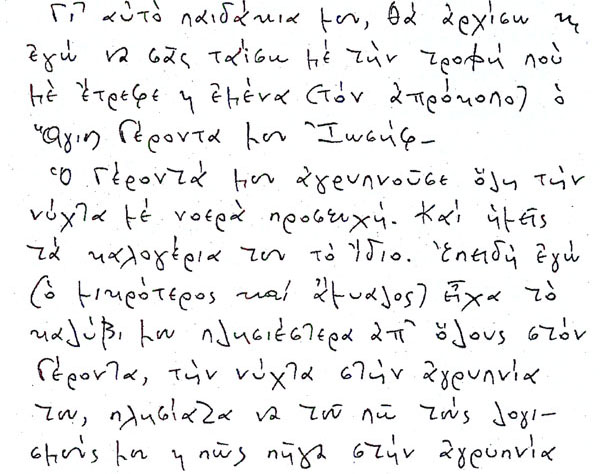 Γι' αὐτό παιδάκια μου, θά ἀρχίσω κ
ἐγώ νά σᾶς ταΐσω μέ τήν τροφή πού
μέ ἔτρεφε κ ἐμένα (τόν ἀπρόκοπο) ὁ
Ἅγιος Γέροντά μου Ἰωσήφ-
Ὁ Γέροντά μου ἀγρυπνοῦσε ὅλη τήν
νύχτα μέ νοερά προσευχή. Καί ἡμεῖς
τά καλογέρια του τό ἴδιο. Ἐπειδή ἐγώ
(ὁ μικρότερος καί ἄμυαλος) εἶχα τό
καλύβι μου πλησιέστερα ἀπ' ὅλους στόν
Γέροντα, τήν νύχτα στήν ἀγρυπνία
του, πλησίαζα νά τοῦ πῶ τούς λογι-
σμούς μου κ πῶς πῆγα στήν ἀγρυπνία